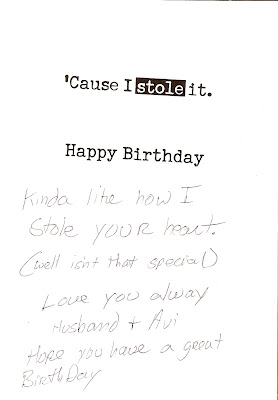 'Cause I stole it.
Happy Birthday
Kinda like how I
Stole YOUR heart.
(well isn't that special)
Love you alway
Husband + Avi
Hope you have a great
Birth Day